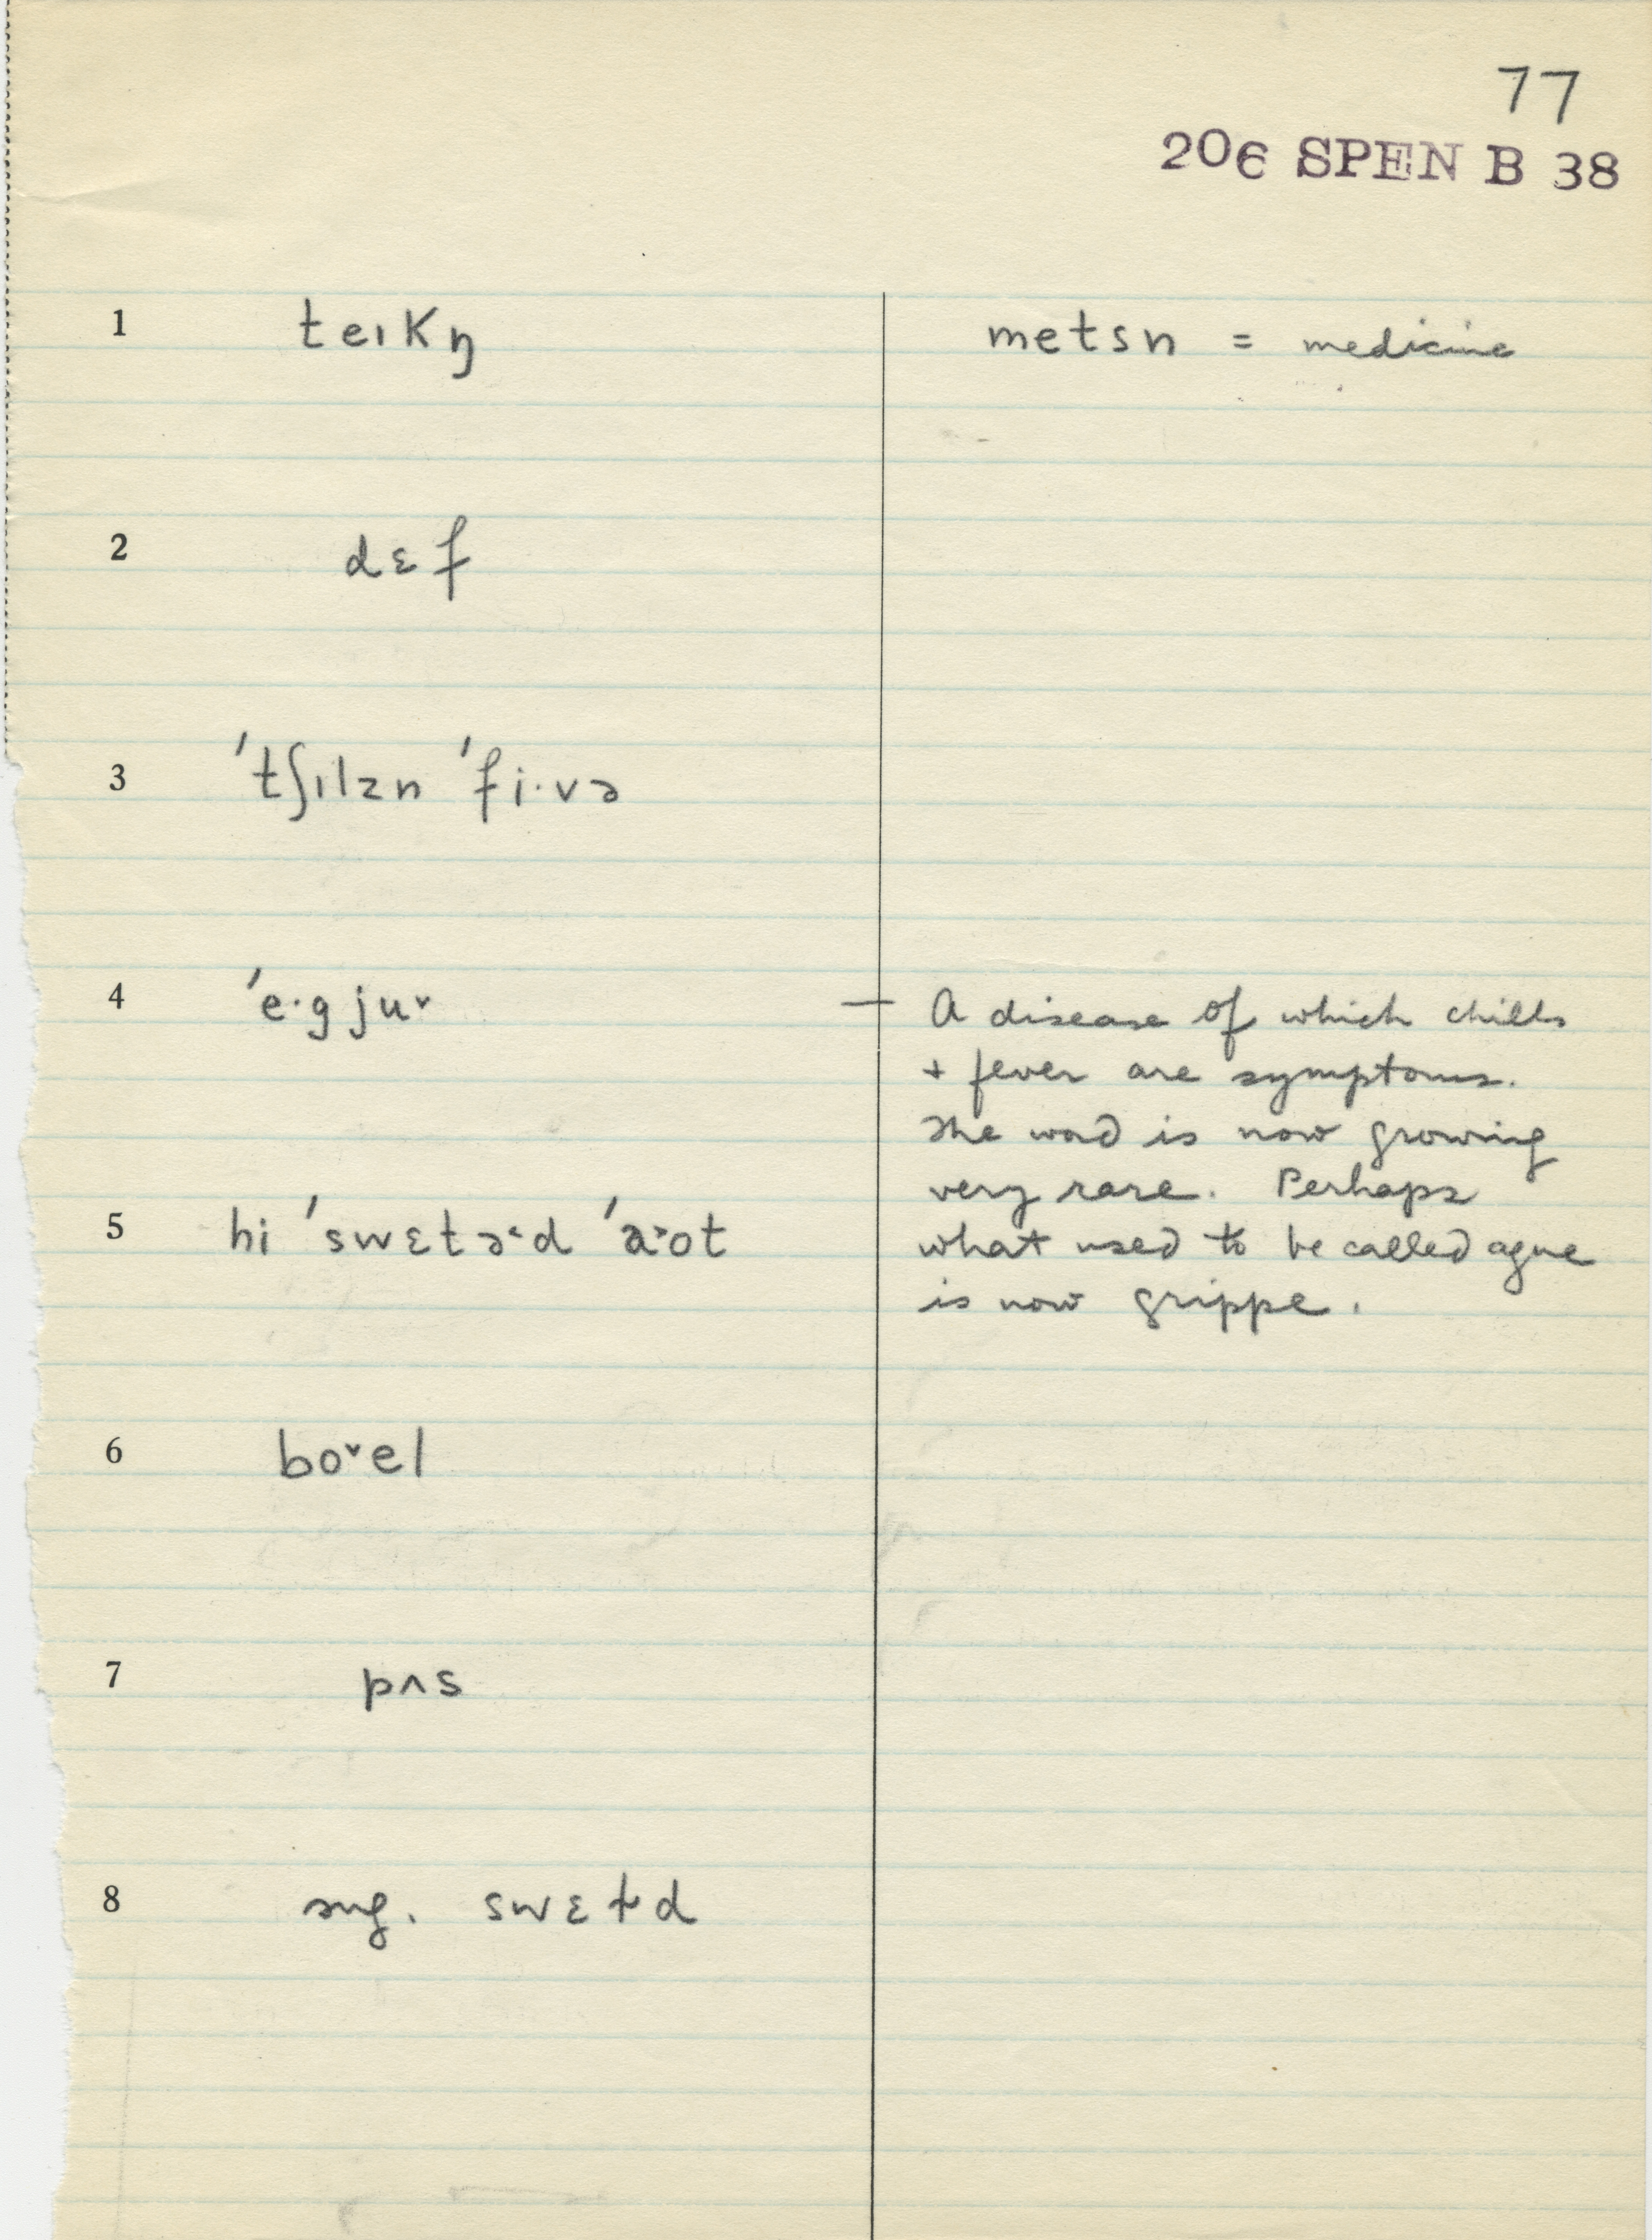 77
206 SPEN B 38
1 teɪkŋ metsn = medicine
2 dɛf
3 ˈtʃɪlzn ˈfi·və
4 ˈe·gju˅ — A disease of which chills
+ fever are symptoms.
The word is now growing
very rare. Perhaps
5 hi ˈswɛtə˂d ˈa˃ot what used to be called ague
is now grippe.
6 bo˅el
7 pʌs
8 sug. swɛtɪd